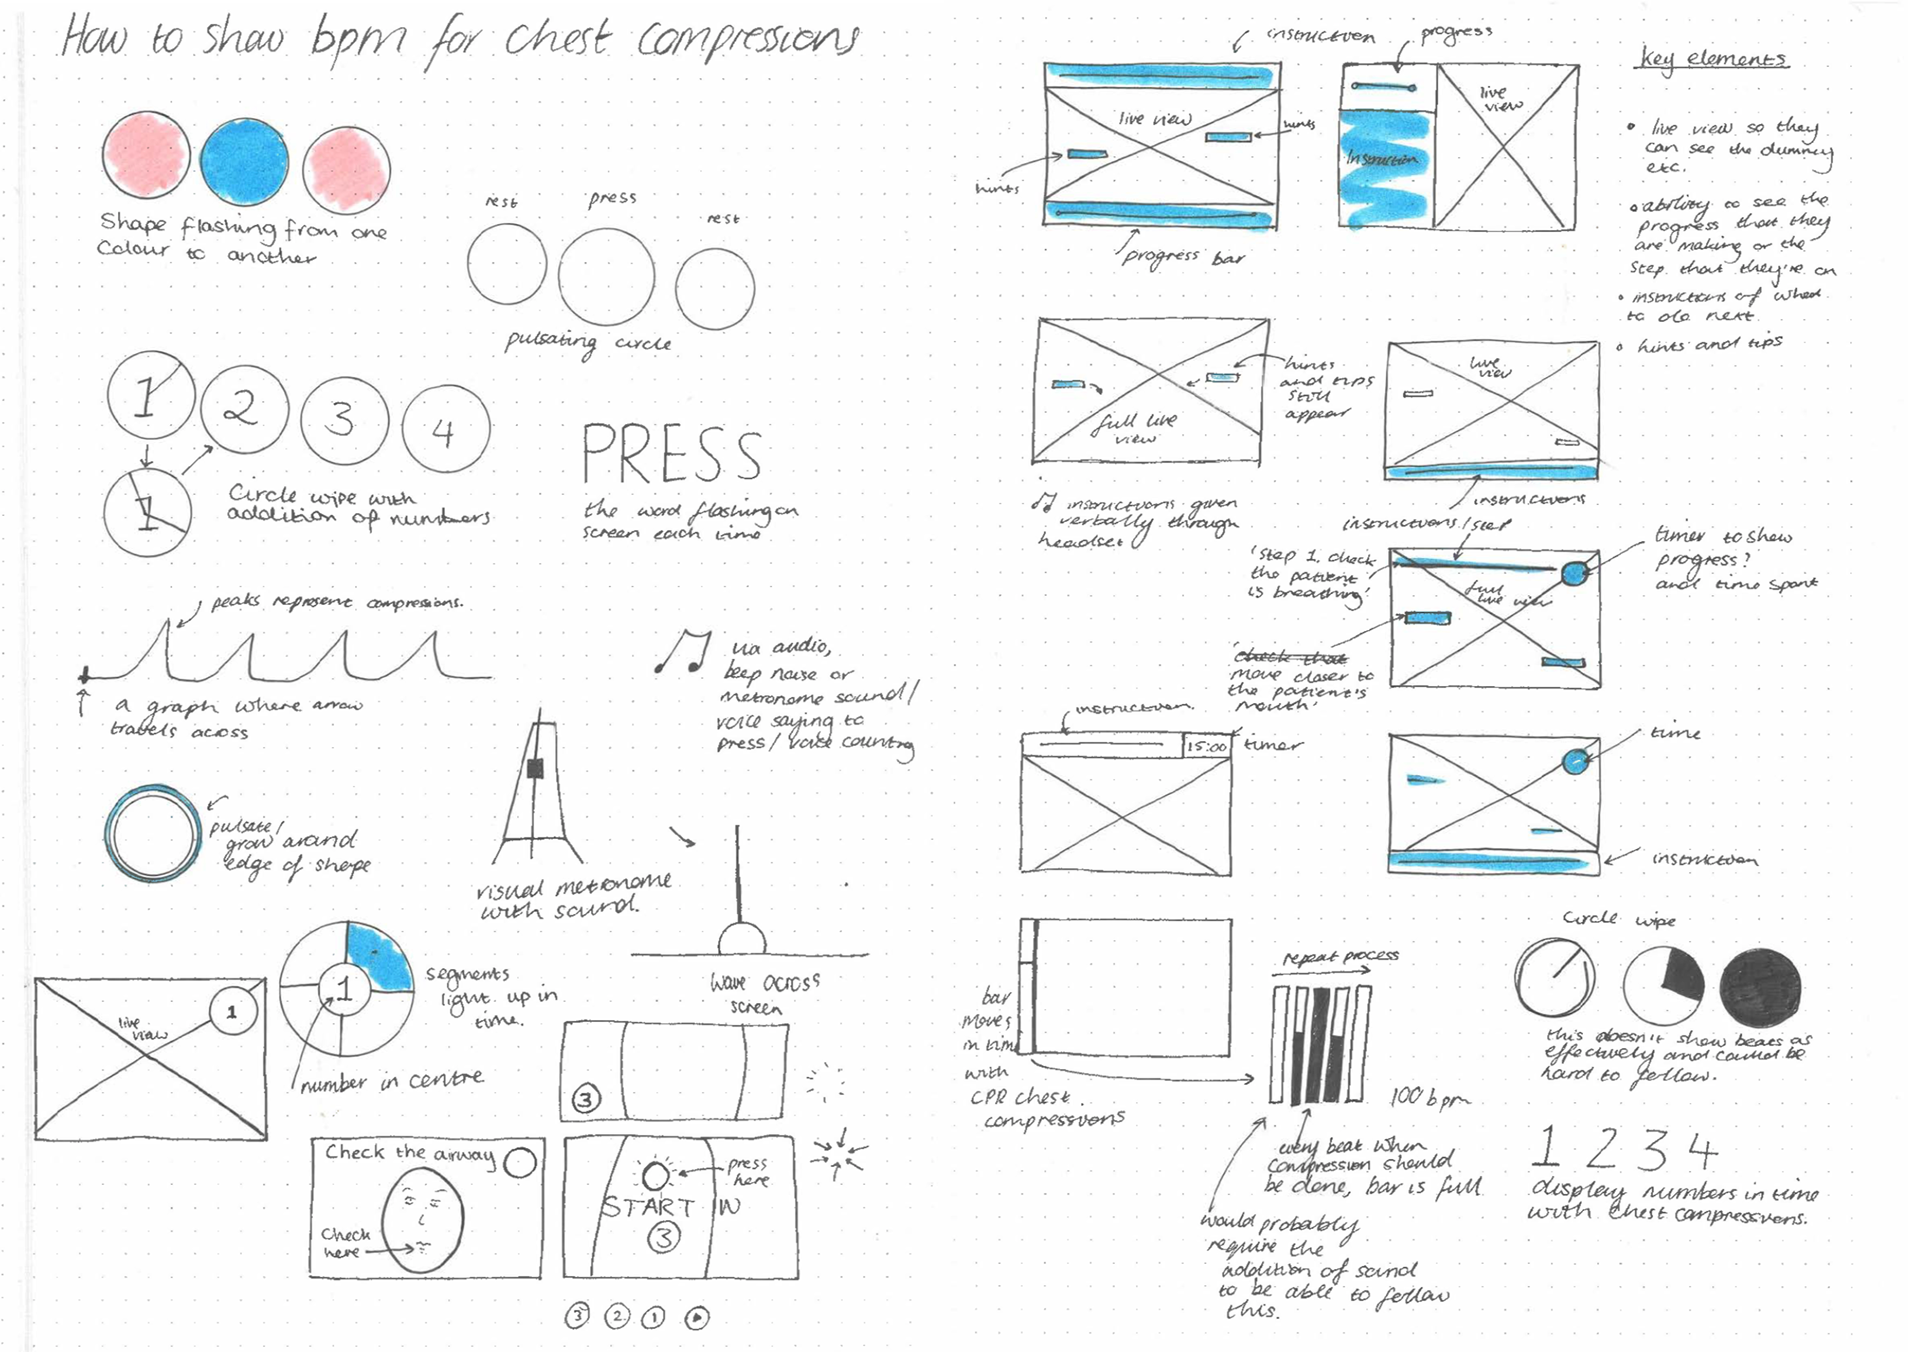 How to show bpm for chest compressions
Shape flashing from one
colour to another
rest
press
rest
pulsating circle
1
2
3
4
1
Circle wipe with
addition of numbers
PRESS
the word flashing on
screen each time
peaks represent compressions.
a graph where arrow
travels across
via audio,
beep noise or
metronome sound/
voice saying to
press/ voice counting
pulsate/
grow around
edge of shape
visual metronome
with sound.
wave across
screen
live
view
1
1
segments
light up in
time.
number in centre
3
Check the airway
Check
here
press
here
START IN
3
3 2 1
instruction
progress
live view
hints
hints
progress bar
live
view
instruction
key elements
• live view so they
can see the dummy
etc.
• ability to see the
progress that they
are making or the
step that they're on
• instructions of what
to do next
• hints and tips
full live
view
hints
and tips
still
appear
instructions given
verbally through
headset
live
view
instructions
instructions/step
'step 1. check
the patient
is breathing'
full
live view
timer to show
progress?
and time spent
check that
move closer to
the patient's
mouth'
instruction
15:00
timer
time
instruction
bar
moves
in time
with
CPR chest
compressions
repeat process
100bpm
every beat when
compression should
be done, bar is full
would probably
require the
addition of sound
to be able to follow
this.
Circle wipe
this doesn't show beats as
effectively and could be
hard to follow.
1 2 3 4
display numbers in time
with chest compressions.